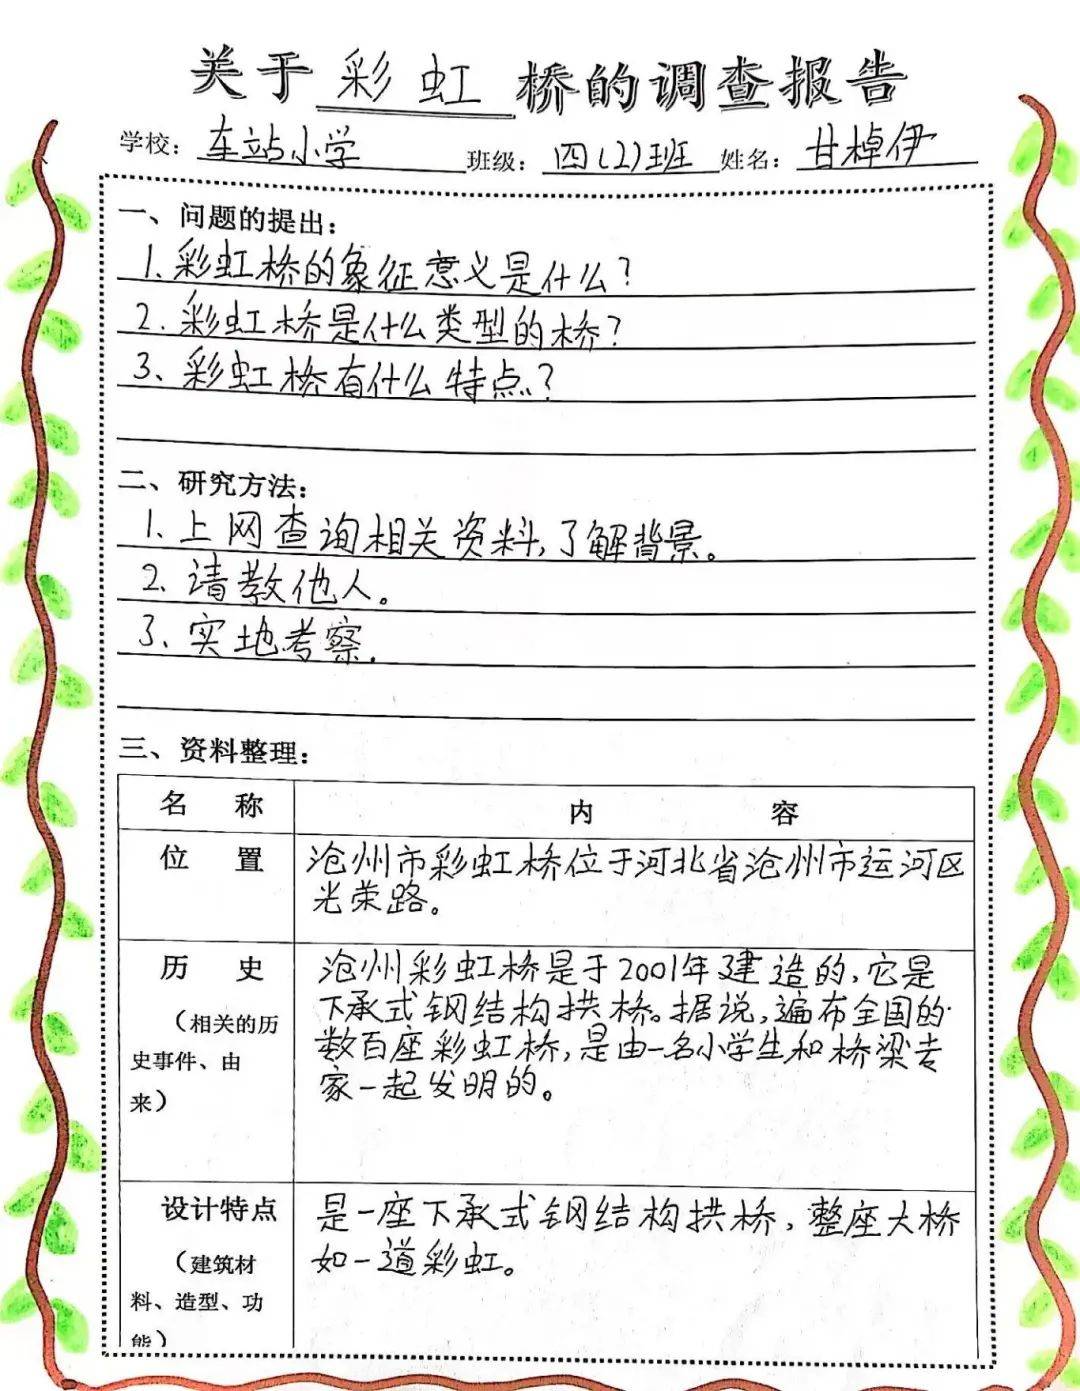 关于彩虹桥的调查报告
学校：车站小学 班级：四(2)班 姓名：甘棹伊
一、问题的提出：
1.彩虹桥的象征意义是什么？
2.彩虹桥是什么类型的桥？
3、彩虹桥有什么特点？
二、研究方法：
1.上网查询相关资料,了解背景。
2.请教他人。
3、实地考察.
三、资料整理：
名 称 内 容
位 置
沧州市彩虹桥位于河北省沧州市运河区
光荣路。
历 史
（相关的历
史事件、由
来）
沧州彩虹桥是于2001年建造的,它是
下承式钢结构拱桥。据说,遍布全国的
数百座彩虹桥,是由一名小学生和桥梁专
家一起发明的。
设计特点
（建筑材
料、造型、功
能）
是一座下承式钢结构拱桥,整座大桥
如一道彩虹。